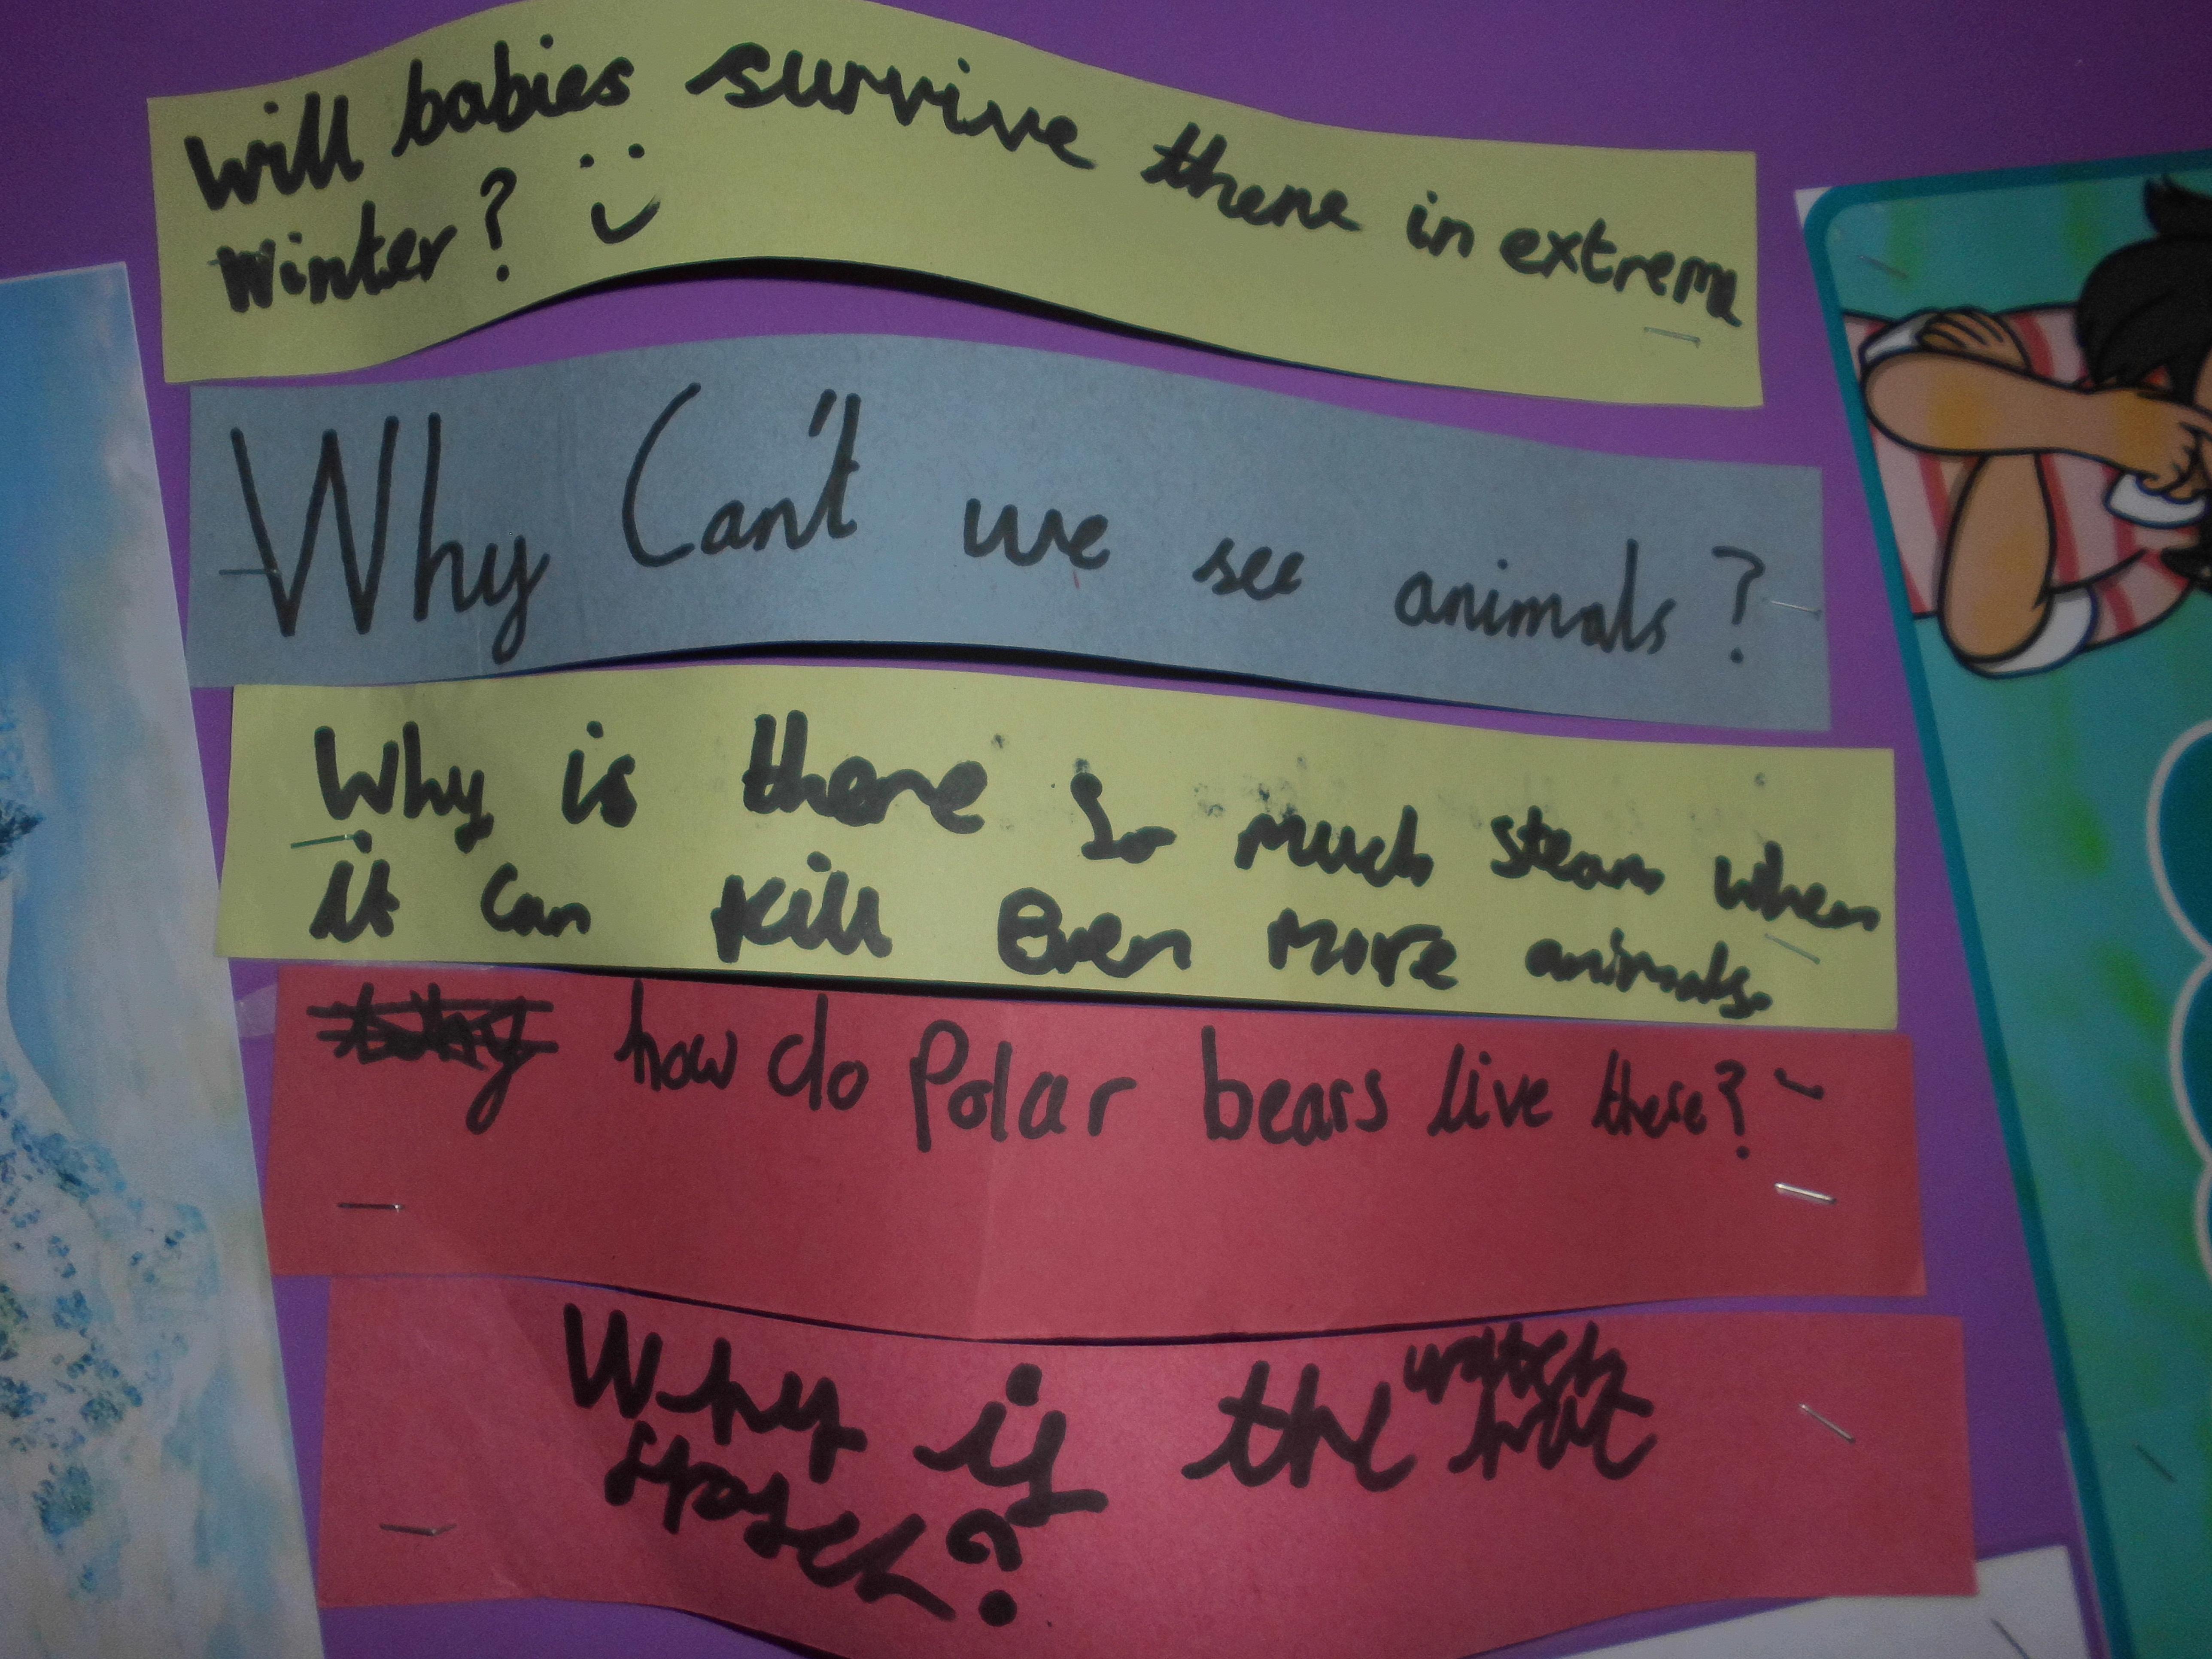 Will babies survive there in extreme
Winter?
Why Can't we see animals?
Why is there So much steam when
it can kill Even more animals.
how do Polar bears live there?
Why is the not